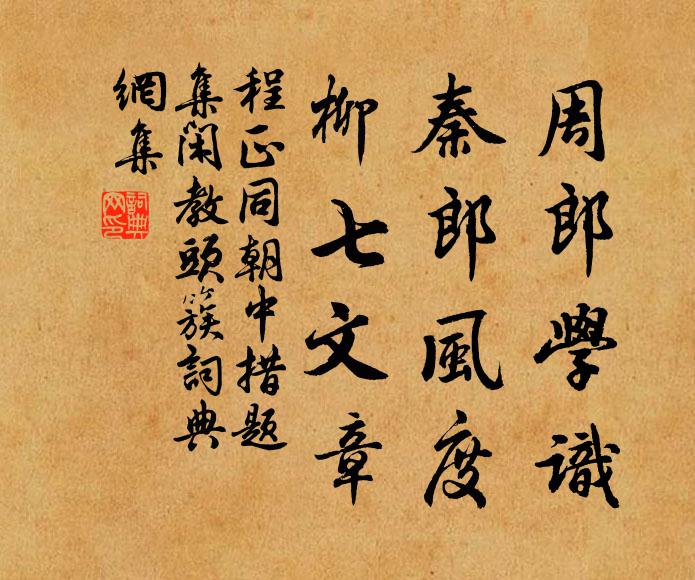 周郎學識
秦郎風度
柳七文章
程正同朝中措題
集閑教頭簇詞典
網集
詞典
網印